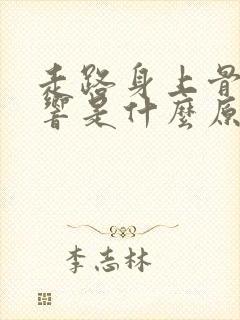 走路身上骨
響是什麼原
李志林